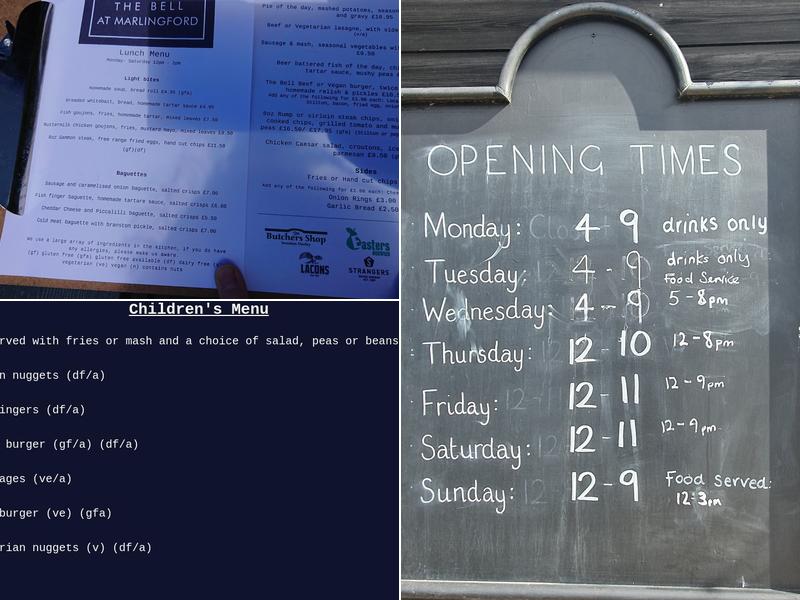 THE BELL
AT MARLINGFORD
Lunch Menu
Monday- Saturday 12pm - 3pm
Light bites
Homemade soup, bread roll £4.95 (gfa)
Breaded whitebait, bread, homemade tartar sauce £6.95
Fish goujons, fries, homemade tartar, mixed leaves £7.50
Buttermilk chicken goujons, fries, mustard mayo, mixed leaves
8oz Gammon steak, free range fried eggs, hand cut chips £11.50
(gf)(df)
Baguettes
Sausage and caramelised onion baguette, salted crisps £7.00
Fish finger baguette, homemade tartare sauce, salted crisps
Cheddar Cheese and Piccalilli baguette, salted crisps
Cold meat baguette with branston pickle, salted crisps £7.00
We use a large array of ingredients in the kitchen, if you do have
any allergies, please make us aware.
(gf) gluten free (gfa) gluten free available (df) dairy free
vegetarian (ve) vegan (n) contains nuts
Pie of the day, mashed potatoes, seasonal
and gravy
Beef or Vegetarian lasagne, with side
(v/a)
Sausage & mash, seasonal vegetables
£9.50
Beer battered fish of the day,
tartar sauce, mushy peas
The Bell Beef or Vegan burger, twice
homemade relish & pickles
Add any of the following for £1.00 each:
Stilton, bacon, fried egg,
8oz Rump or sirloin steak chips,
cooked chips, grilled tomato and
peas £16.50/ £17.95 (gfa) (Stilton or
Chicken Caesar salad, croutons,
parmesan £9.50
Sides
Fries or Hand cut chips
Add any of the following for £1.00 each:
Onion Rings £3.00
Garlic Bread £2.50
The
Butchers Shop
LACONS
STRANGERS
Children's Menu
rved with fries or mash and a choice of salad, peas or beans
n nuggets (df/a)
ingers (df/a)
burger (gf/a) (df/a)
ages (ve/a)
burger (ve) (gfa)
rian nuggets (v) (df/a)
OPENING TIMES
Monday: 4 9 drinks only
Tuesday: 4 - 9 drinks only
Food Service
Wednesday: 4 - 9 5 - 8pm
Thursday: 12 - 10 12 - 8pm
Friday: 12 - 11 12 - 9pm
Saturday: 12 - 11 12 - 9pm
Sunday: 12 - 9 Food served:
12-3pm